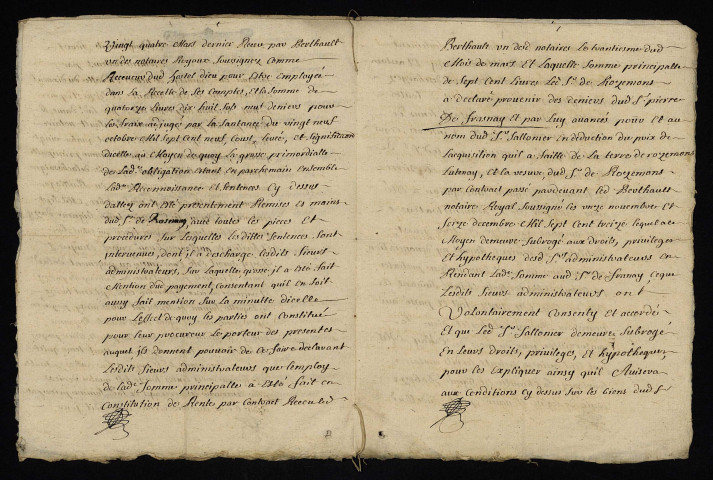 Vingt quatre Mars dernier Receu par Berthault
un des notaires Royaux soussignez comme
Receveur dud hostel dieu pour Estre Employée
dans la Recette de ses Comptes, et la somme de
quatorze livres dix huit sols neuf deniers pour
les fraix adjugé par la Santance du vingt neuf
octobre Mil sept cent neuf, Coust, levée, et signiffication
dicelle au Moyen de quoy la grosse primordialle
de Lad.e obligation Estant en parchemain Ensemble
Lad.e Reconnaissance et sentences Cy dessus
dattez ont Esté presentement Remises es mains
dud S.r de Rosnay avec toutes les pieces et
procedures sur Lesquelles lesdittes sentences sont
intervenues, dont il a descharge lesdits Sieurs
administrateurs, sur Laquelle grosse il a Esté fait
Mention dud payement, consentant quil en soit
aussy fait mention sur La minutte dicelle
pour Leffect de quoy les parties ont Constitué
pour leur procureur Le porteur des presentes
auquel ils donnent pouvoir de ce faire declarant
Lesdits Sieurs administrateurs que lemploy
de Lad.e somme principalle a Esté fait en
Constitution de Rente par Contract Receu led
Berthault un desd notaires Le vantiesme dud
Mois de mars Et Laquelle somme principalle
de sept Cent Livres Led S.r de Rozemons
a declaré provenir des deniers dud S.r pierre
De frasnay et par Luy avancés pour et au
nom dud S.r Sallonier en deduction du prix de
Lacquisition quil a faitte de La terre de rozemons
Lutenay, et La vesvre, dud S.r de Rozemons
par Contract passé pardevant led Berthault
notaire Royal soussigné les unze novembre et
seize decembre Mil sept Cent treize lequel au
Moyen demeure subrogé aux droits, privileges
Et hypotheques desd S.rs administrateurs en
Rendant Lad.e somme aud S.r de frasnay ce que
Lesdits Sieurs administrateurs ont
Volontairement Consenty et accordé
Et que Led S.r Sallonier demeure subrogé
En Leurs droits, privileges, et hypotheques
pour les Expliquer ainsy quil Avisera
aux Conditions Cy dessus sur les biens dud S.r